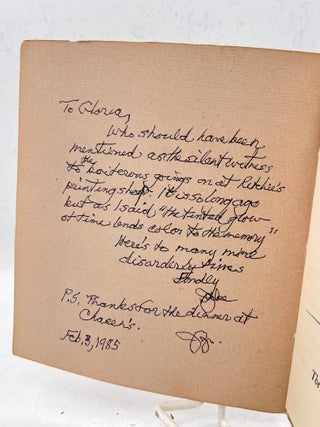 To Gloria,
Who should have been
mentioned as the silent witness
to the boiterous goings on at Ritchie's
printing shop. It is so long ago
but as I said "the tinted glow
of time lends color to the memory"
Here's to many more
disorderly times
Fondly
P.S. Thanks for the dinner at
Chasen's.
Feb. 3, 1985
The